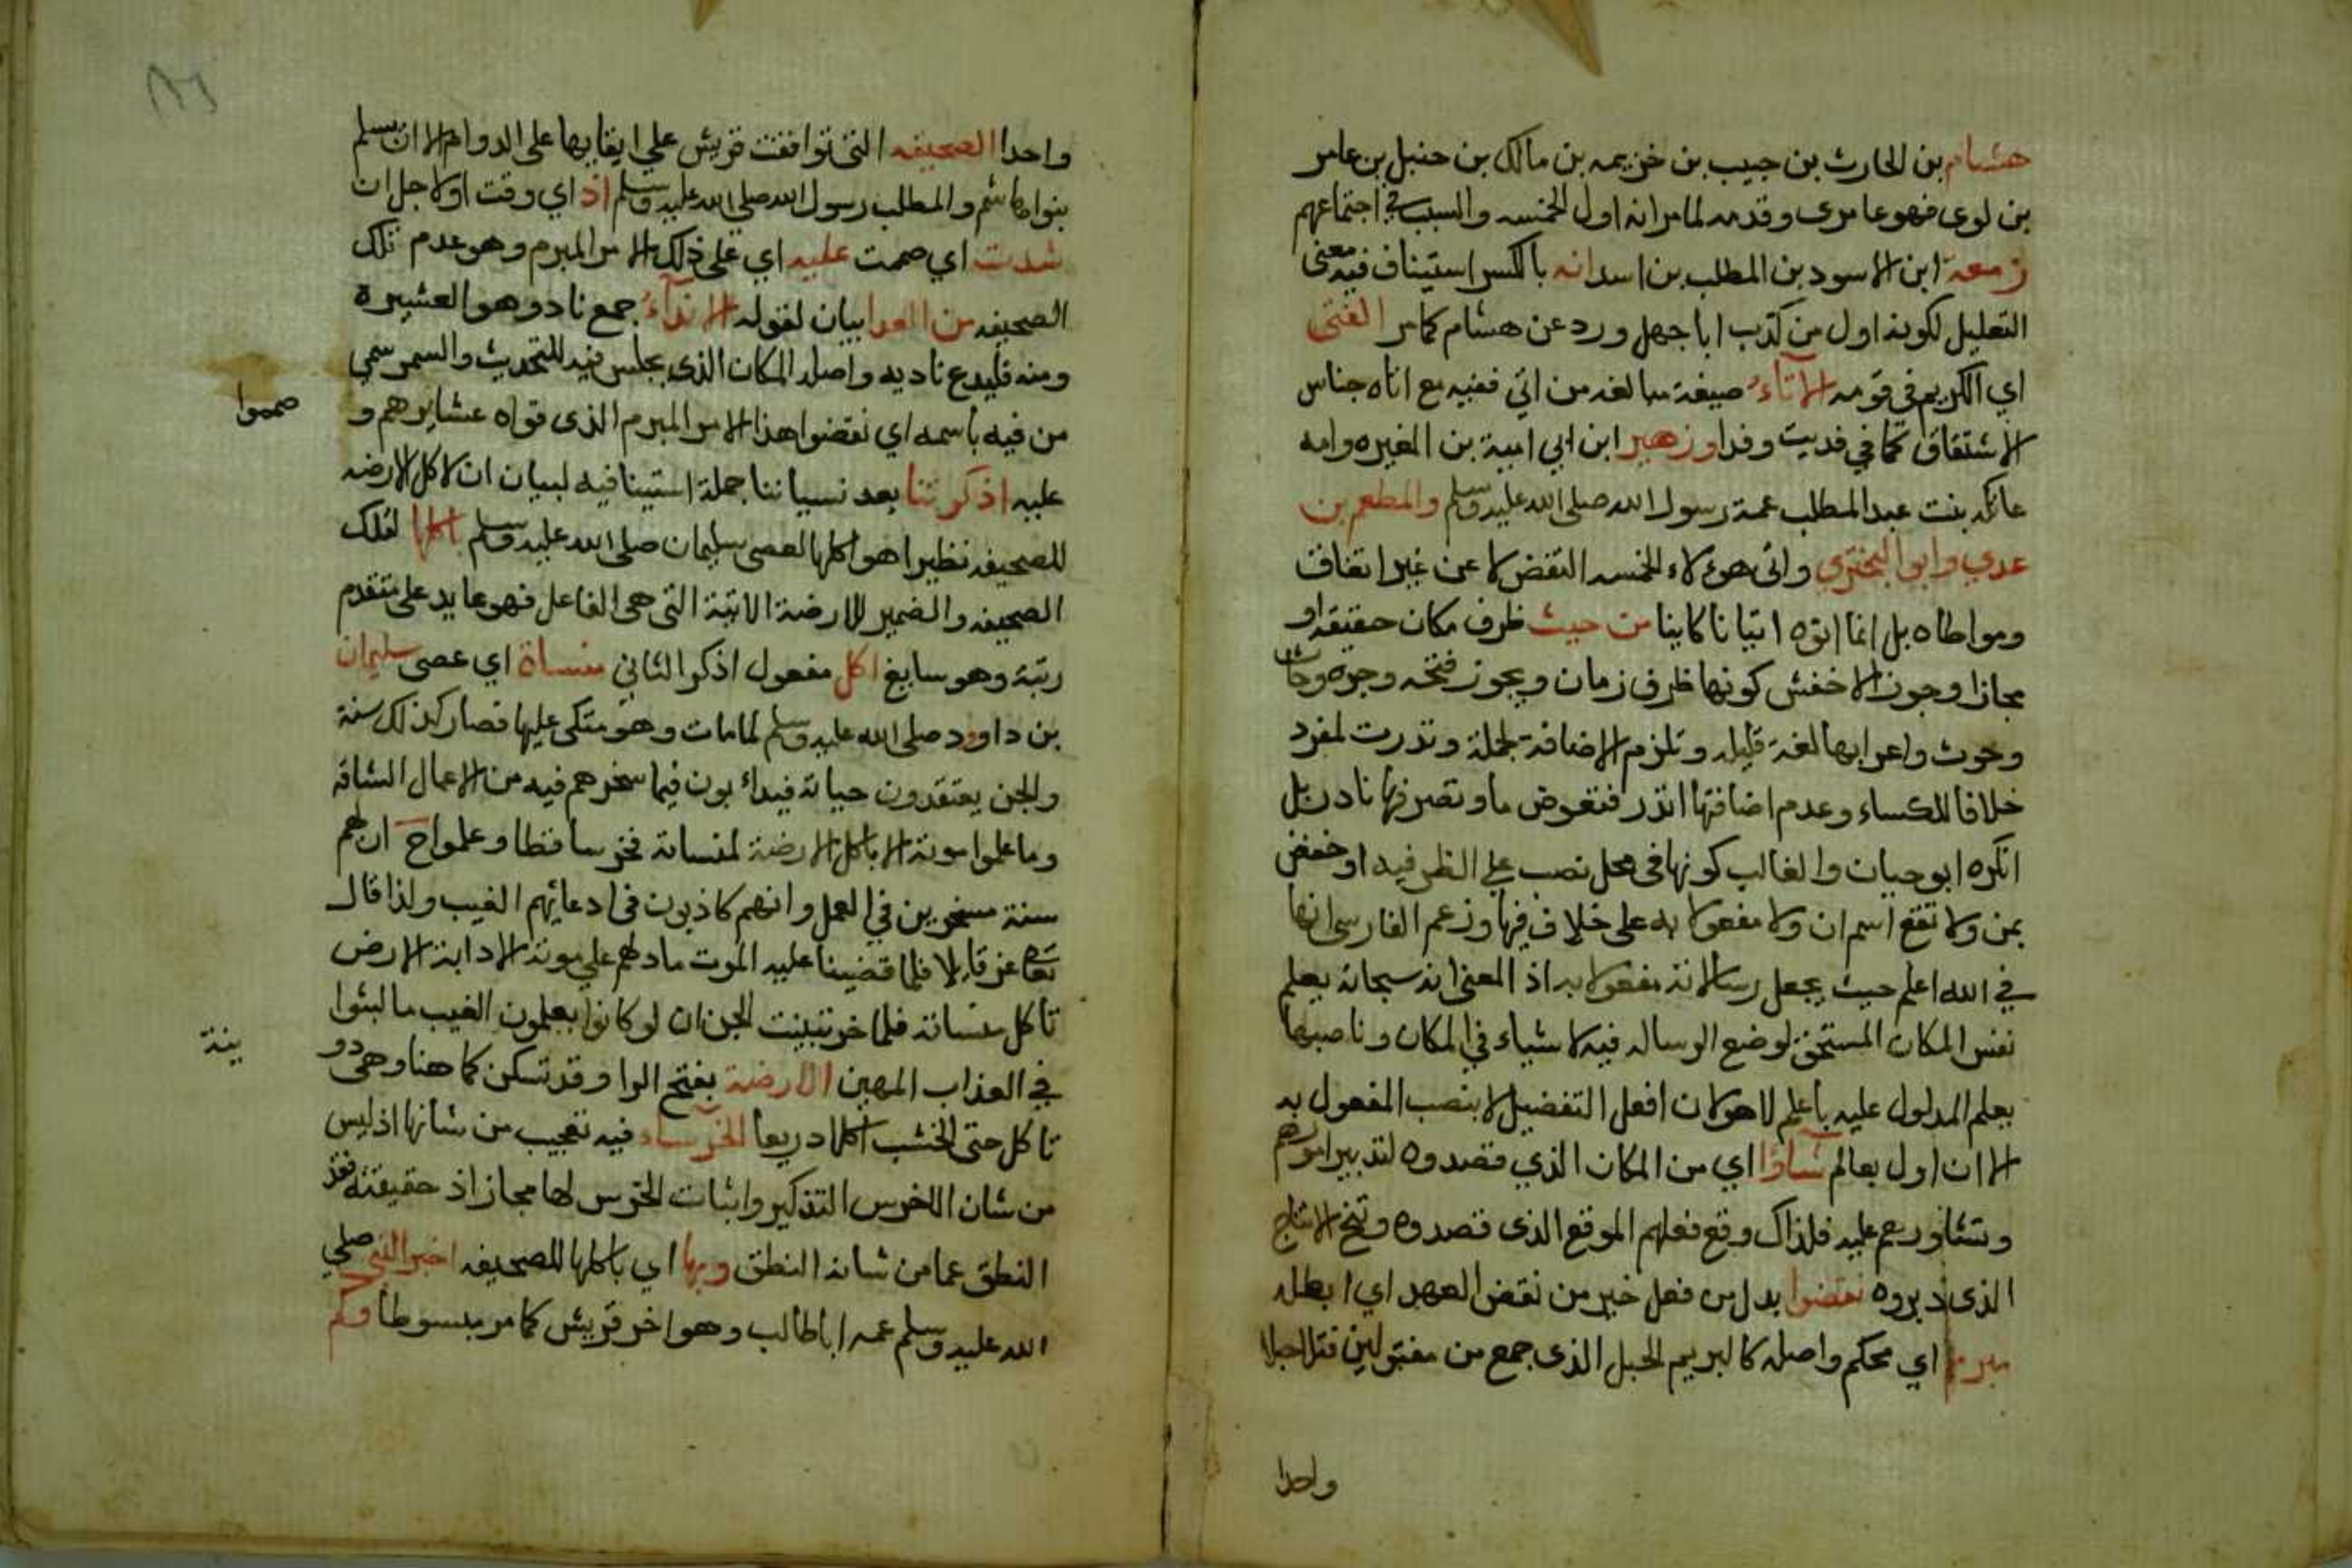 هشام بن الحارث بن حبيب بن خزيمه بن مالك بن حنبل بن عامر
بن لوى فهو عامرى وقدمه لما مر انه اول الخمسه والسبب في اجتماعهم
زمعة ابن الاسود بن المطلب بن اسد انه بالكسر استيناف فيه معنى
التعليل لكونه اول من كذب ابا جهل ورد عن هشام كما مر الفتى
اي الكريم في قومه الأتآء صيغة مبالغه من اتي ففيه مع اتاه جناس
الاشتقاق كما في فديت وفدا وزهير ابن ابي امية بن المغيره وامه
عاتكه بنت عبد المطلب عمة رسول الله صلى الله عليه وسلم والمطعم بن
عدي وابو البختري واتى هوءلاء الخمسه النقض لا عن غير اتفاق
ومواطاه بل انما اتوه اتيانا كاينا من حيث ظرف مكان حقيقة او
مجازا وجوز الاخفش كونها ظرف زمان ويجوز فتحه وجره وحاث
وحوث واعرابها لغة قليله وتلزم الاضافة لجملة وندرت لمفرد
خلافا للكساء وعدم اضافتها اندر فتعوض ما وتصرفها نادر بل
انكره ابو حيان والغالب كونها في محل نصب على الظرفيه او خفض
بمن ولا تقع اسم ان ولا مفعولا به على خلاف فيها وزعم الفارسى انها
في الله اعلم حيث يجعل رسالاته مفعولا به اذ المعنى انه سبحانه يعلم
نفس المكان المستحق لوضع الرساله فيه لا شياء في المكان وناصبها
يعلم المدلول عليه باعلم لا هو لان افعل التفضيل لا ينصب المفعول به
الا ان اول بعالم شاؤا اي من المكان الذي قصدوه لتدبير امورهم
وتشاورهم عليه فلذاك وقع فعلهم الموقع الذى قصدوه ونتج الانتاج
الذى دبروه نقضوا بدل من فعل خير من نقض العهد اي ابطله
مبرما اي محكم واصله كالبريم الحبل الذى جمع من مفتولين فتلا حبلا
واحدا
واحدا الصحيفه التى توافقت قريش على ابقايها على الدوام الا ان يسلم
بنوا هاشم والمطلب رسول الله صلى الله عليه وسلم اذ اي وقت او لاجل ان
شدت اي صممت عليه اي على ذلك الامر المبرم وهو عدم تلك
الصحيفه من العدا بيان لقوله الاندآء جمع ناد وهو العشيرة
ومنه فليدع ناديه واصله المكان الذى يجلس فيه للتحديث والسمر سمي
من فيه باسمه اي نقضوا هذا الامر المبرم الذى قواه عشايرهم و
صمموا
عليه اذكرتنا بعد نسياننا جملة استينافيه لبيان ان لاكل الارضه
للصحيفه نظيرا هو اكلها لعصى سليمان صلى الله عليه وسلم باكلها لتلك
الصحيفه والضمير للارضة الاتية التى هى الفاعل فهو عايد على متقدم
رتبة وهو سايغ اكل مفعول اذكر الثاني منساة اي عصى سليمان
بن داوود صلى الله عليه وسلم لما مات وهو متكى عليها فصار كذلك سنة
والجن يعتقدون حياته فيداء بون فيما سخرهم فيه من الاعمال الشاقه
وما علموا موته الا باكل الارضة لمنساته فخر ساقطا وعلموا ح ان لهم
سنة مسخرين في العمل وانهم كاذبون فى ادعائهم الغيب ولذا قال
تعالى عز قايلا فلما قضينا عليه الموت ما دلهم على موته الا دابة الارض
تاكل منساته فلما خر تبينت الجن ان لو كانوا يعلمون الغيب ما لبثوا
في العذاب المهين الارضة بفتح الرا وقد تسكن كما هنا وهى دو
يبة
تاكل حتى الخشب اكلا ذريعا الخرساء فيه تعجيب من شانها اذ ليس
من شان الاخرس التذكير واثبات الخرس لها مجاز اذ حقيقته فقد
النطق عما من شانه النطق وبها اي باكلها للصحيفه اخبر النبى صلى
الله عليه وسلم عمه ابا طالب وهو اخر قريش كما مر مبسوطا وكم